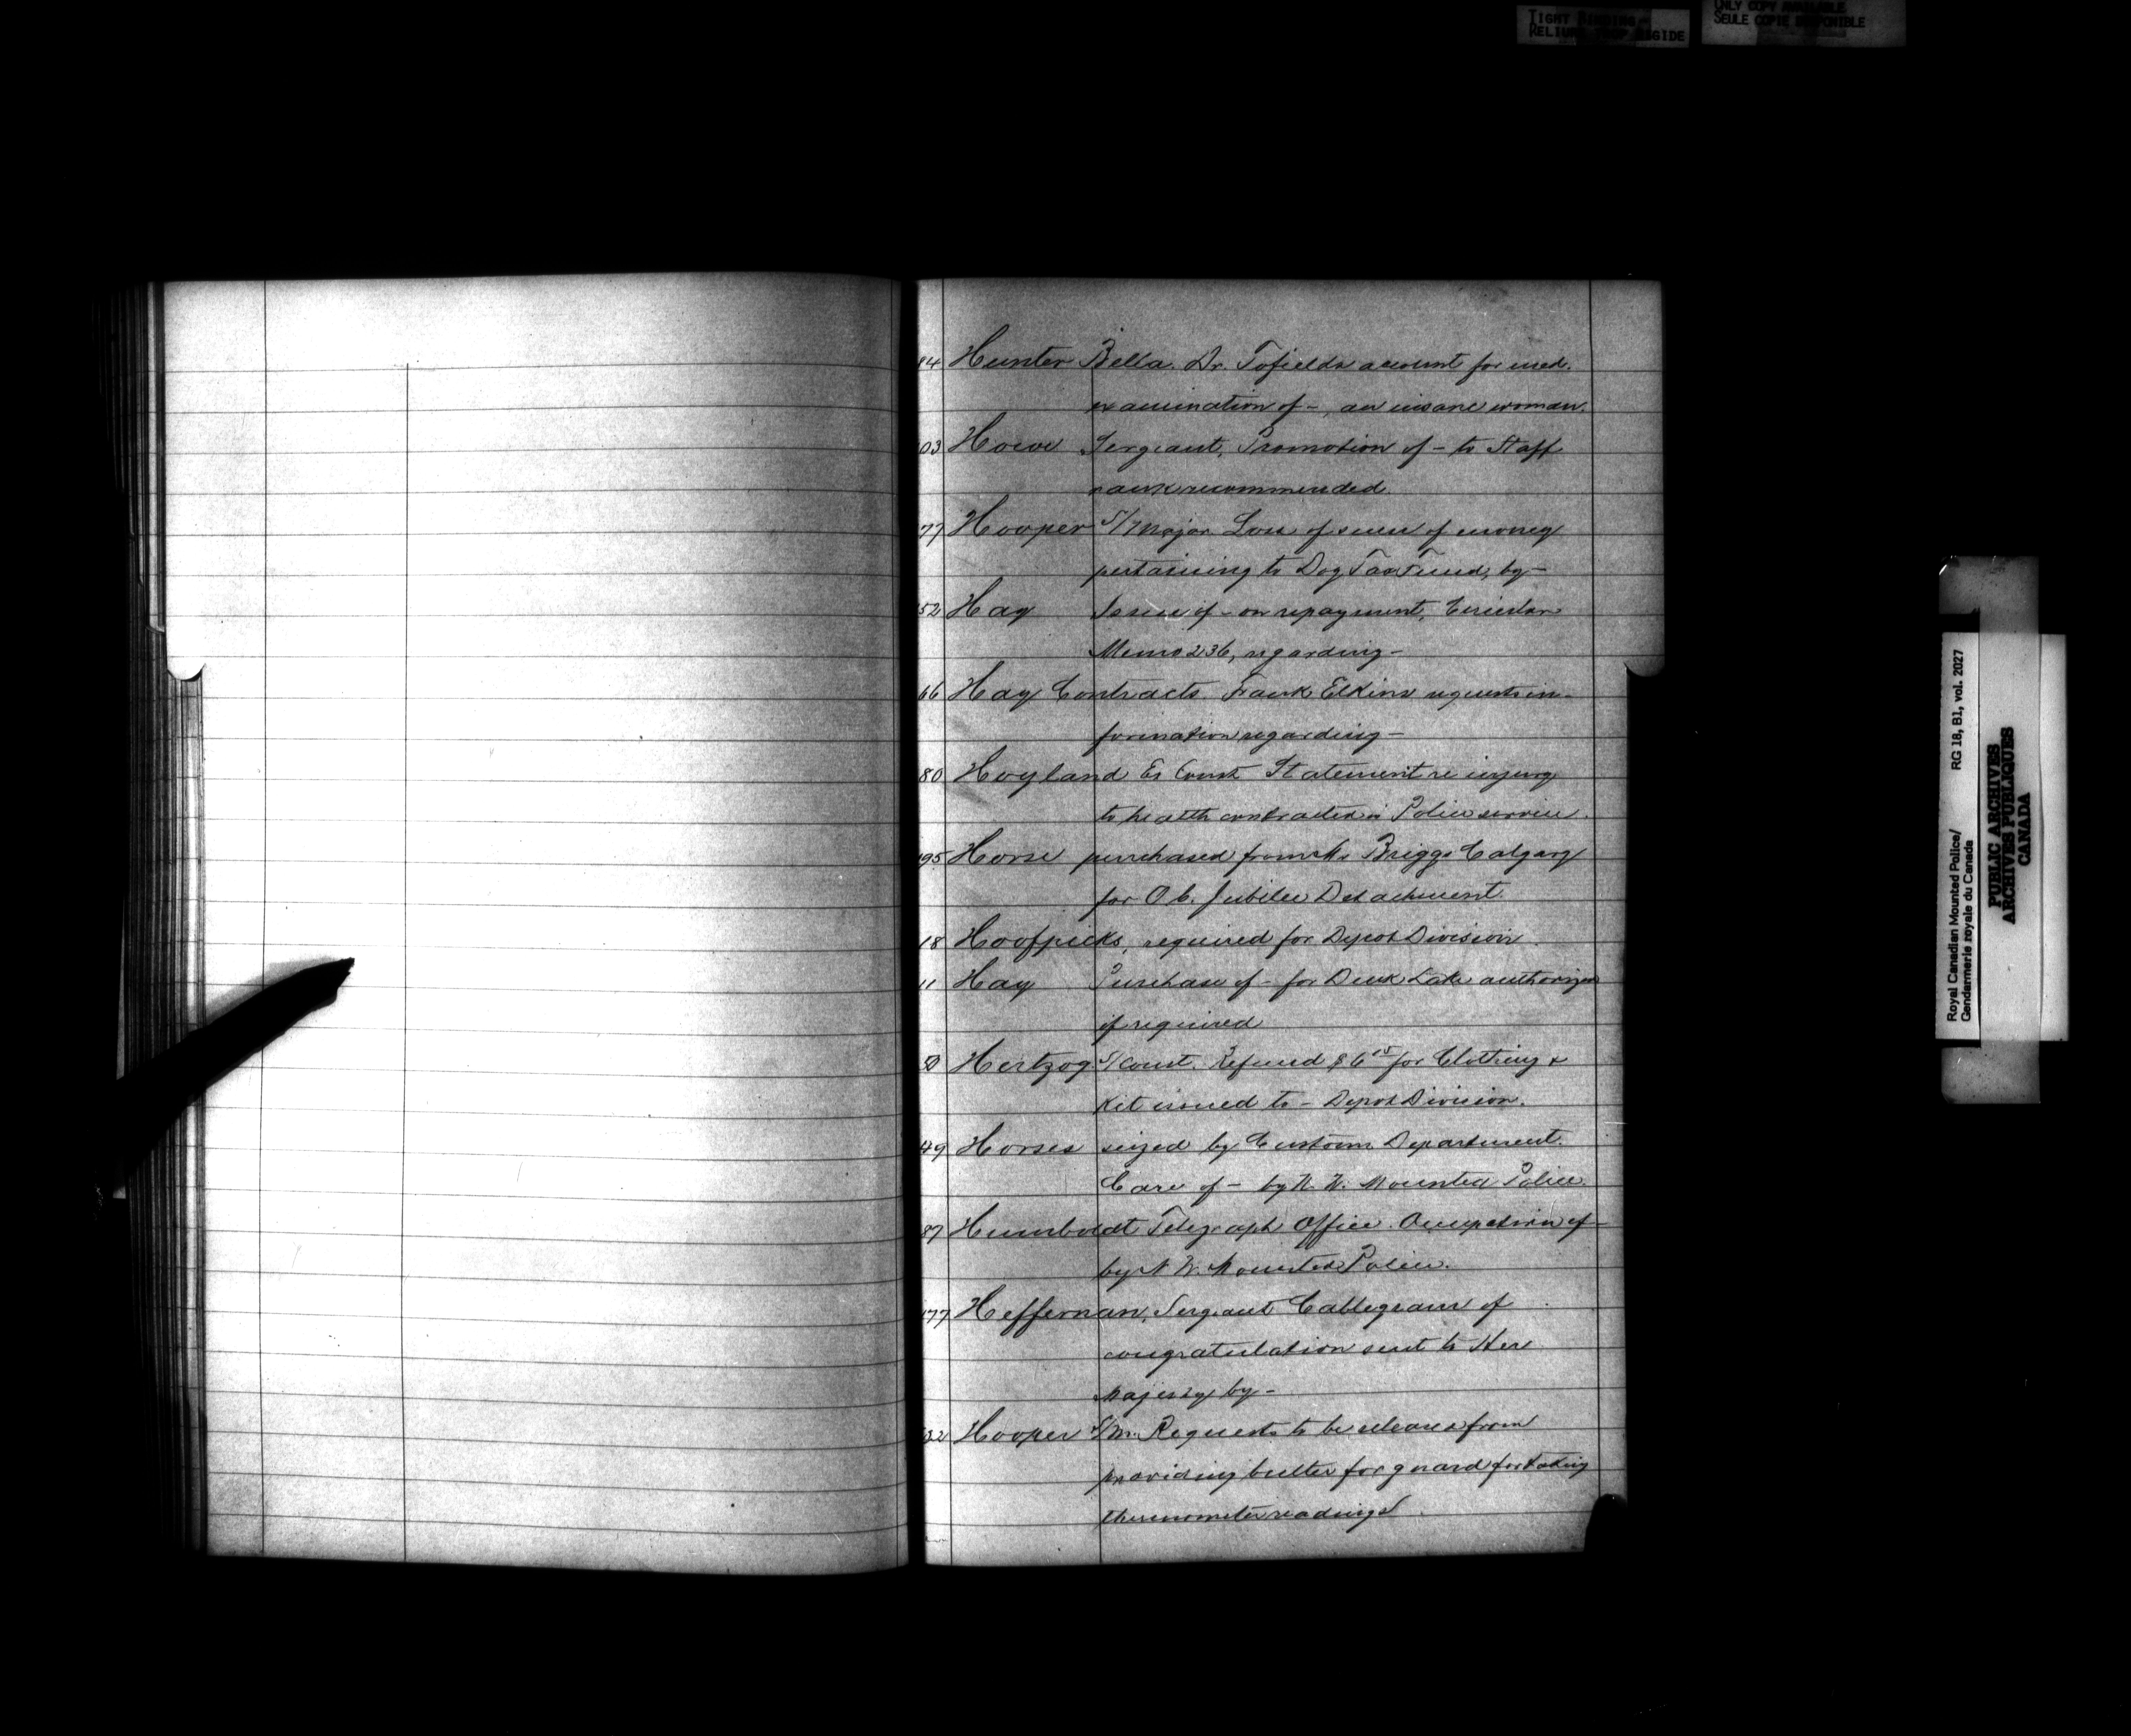 TIGHT BINDING
RELIURE TROP RIGIDE
ONLY COPY AVAILABLE
SEULE COPIE DISPONIBLE
84 Hunter Bella. Dr. Tofields account for med.
examination of -, an insane woman.
03 Howe Sergeant, Promotion of - to Staff
rank recommended.
77 Hooper S/Major Loss of sum of money
pertaining to Dog Tax Fund, by -
52 Hay Issue of - on repayment, Circular
Memo 236, regarding -
66 Hay Contracts. Frank Elkins requests in-
formation regarding -
80 Hoyland Ex Const Statement re injury
to health contracted in Police service.
95 Horse purchased from Mr Briggs Calgary
for O.C. Jubilee Detachment.
18 Hoofpicks, required for Depot Division.
11 Hay Purchase of - for Duck Lake authorized
if required
50 Hertzog S/Const. Refund $6 15 for Clothing &
Kit issued to - Depot Division.
49 Horses seized by Customs Department.
Care of - by N. W. Mounted Police.
87 Humboldt Telegraph Office. Occupation of -
by N W. Mounted Police.
77 Heffernan, Sergeant Cablegram of
congratulation sent to Her
Majesty by -
32 Hooper S/M. Requests to be released from
providing butter for guard for taking
thermometer readings
Royal Canadian Mounted Police/ RG 18, B1, vol. 2027
Gendarmerie royale du Canada
PUBLIC ARCHIVES
ARCHIVES PUBLIQUES
CANADA